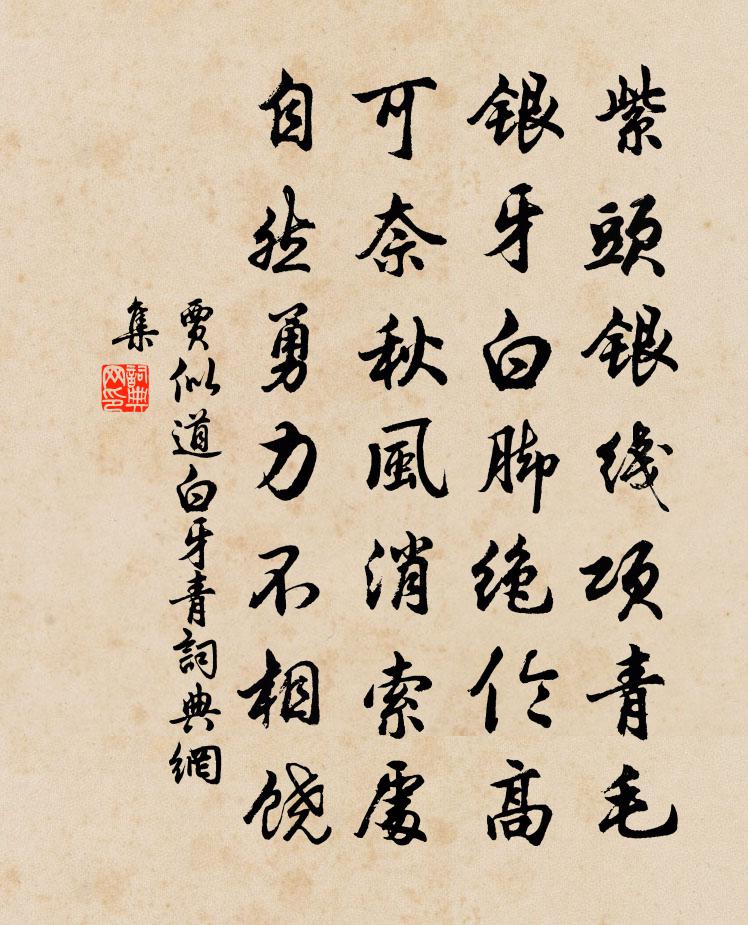 紫頭銀线项青毛
銀牙白脚绝伦高
可奈秋風消索處
自然勇力不相饶
賈似道白牙青詞典網
集
詞典网印